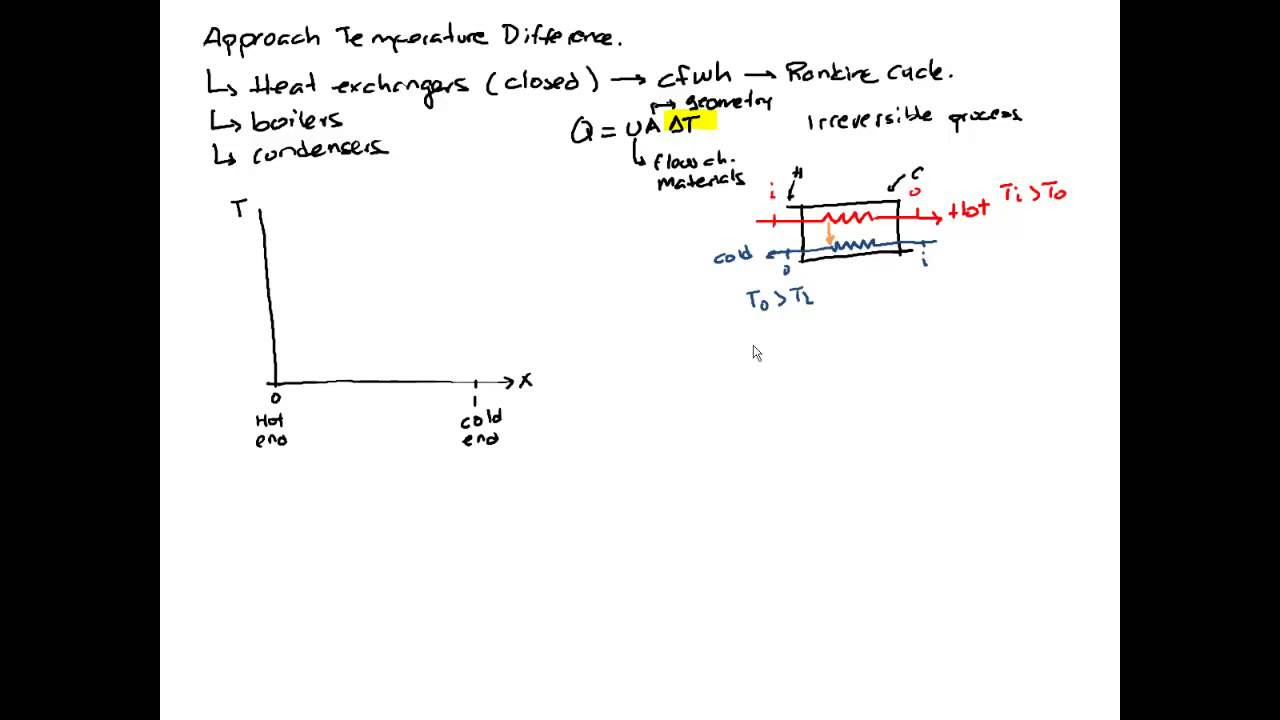 Approach Temperature Difference.
↳ Heat exchangers (closed) → cfwh → Rankine Cycle.
↳ boilers
↳ condensers
Q = UA ΔT
→ geometry
↳ flow ch.
materials
Irreversible process
H
C
i
o
Hot
Ti > To
cold
o
i
To > Ti
T
x
0
1
Hot
end
cold
end